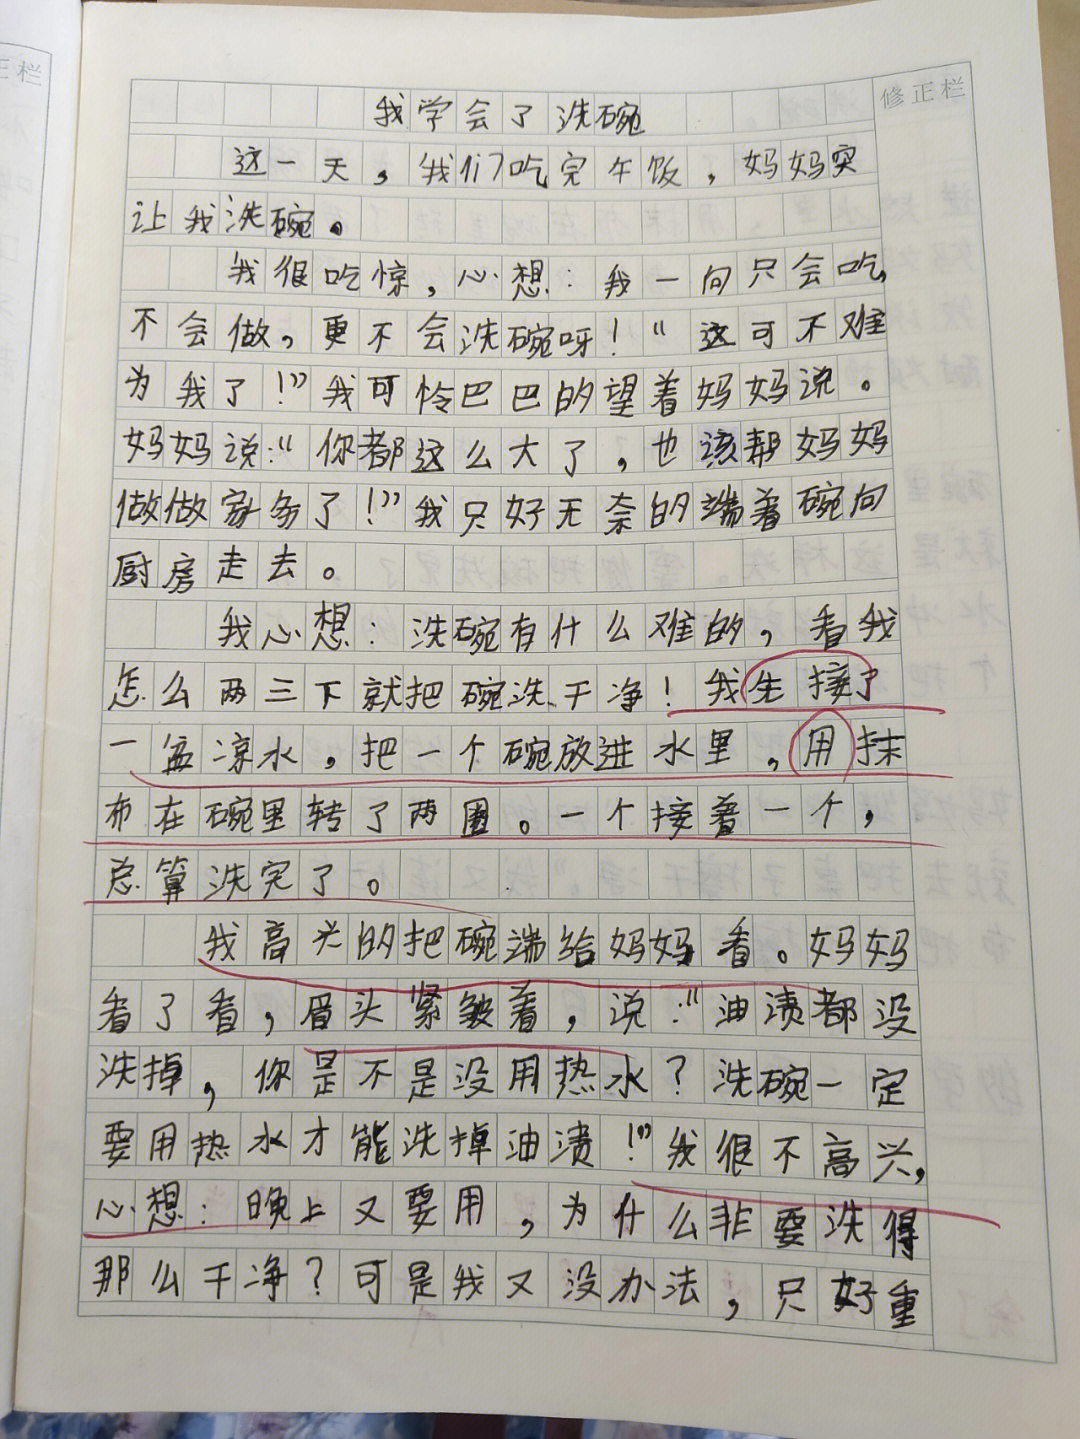 正栏
修正栏
我学会了洗碗
这一天，我们吃完午饭，妈妈突
让我洗碗。
我很吃惊，心想：我一向只会吃，
不会做，更不会洗碗呀！“这可不难
为我了！”我可怜巴巴的望着妈妈说。
妈妈说：“你都这么大了，也该帮妈妈
做做家务了！”我只好无奈的端着碗向
厨房走去。
我心想：洗碗有什么难的，看我
怎么两三下就把碗洗干净！我先接了
一盆凉水，把一个碗放进水里，用抹
布在碗里转了两圈。一个接着一个，
总算洗完了。
我高兴的把碗端给妈妈看。妈妈
看了看，眉头紧皱着，说：“油渍都没
洗掉，你是不是没用热水？洗碗一定
要用热水才能洗掉油渍！”我很不高兴，
心想：晚上又要用，为什么非要洗得
那么干净？可是我又没办法，只好重